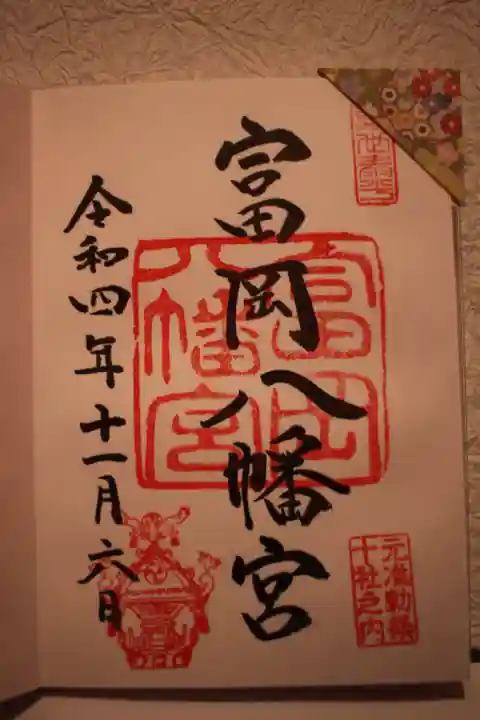 富岡八幡宮
令和四年十一月六日
富岡
八幡宮
元准勅祭
十社之内